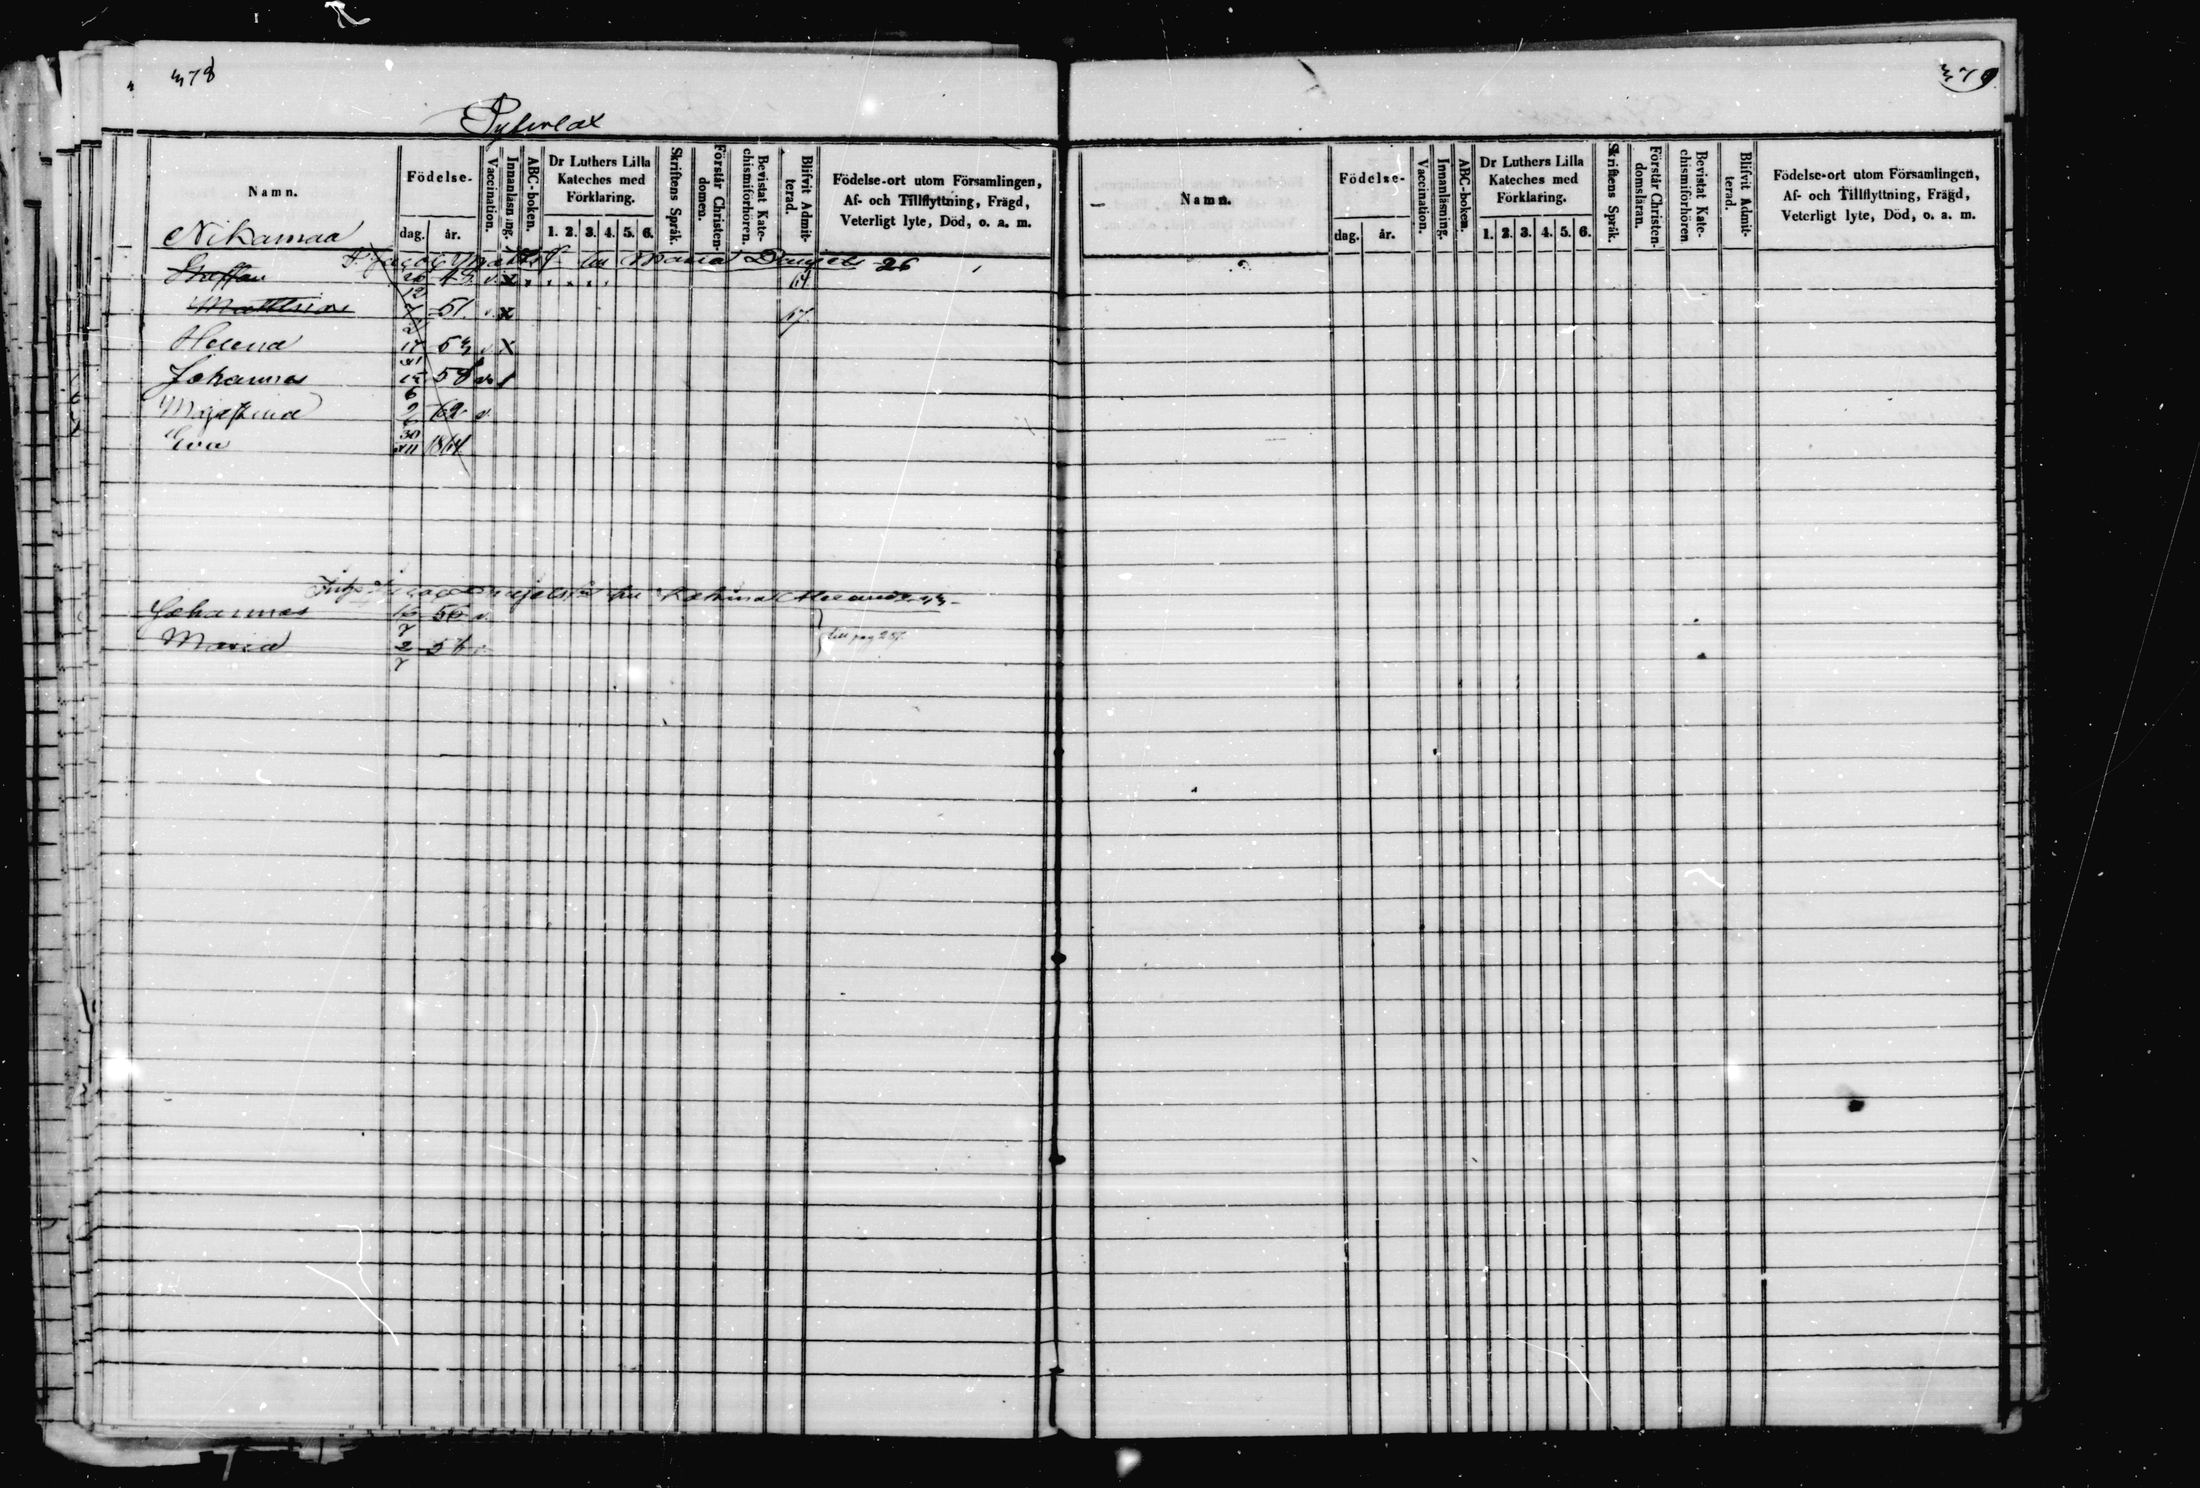 378
Pyterlax
Namn.
Födelse-
dag. år.
Vaccination.
Innanläsning.
ABC-boken.
Dr Luthers Lilla
Kateches med
Förklaring.
1. 2. 3. 4. 5. 6.
Skriftens Språk.
Förstår Christen-
domen.
Bevistat Kate-
chismiförhören.
Blifvit Admit-
terad.
Födelse-ort utom Församlingen,
Af- och Tillflyttning, Frägd,
Veterligt lyte, Död, o. a. m.
Nikamaa
Jacob hu Maria Daniels 26
Staffan 26/12 v. x 64
Matthias 51 v. x 67
Helena 17 53 v. x
Johannes 15/6 58 v.
Maja Stina 2 62 v.
Eva 30/11 1864
hu Katrina
Johannes 15/7 56 v.
Maria 2/7 58 v.
till pag
379
Namn.
Födelse-
dag. år.
Vaccination.
Innanläsning.
ABC-boken.
Dr Luthers Lilla
Kateches med
Förklaring.
1. 2. 3. 4. 5. 6.
Skriftens Språk.
Förstår Christen-
domsläran.
Bevistat Kate-
chismiförhören
Blifvit Admit-
terad.
Födelse-ort utom Församlingen,
Af- och Tillflyttning, Frägd,
Veterligt lyte, Död, o. a. m.